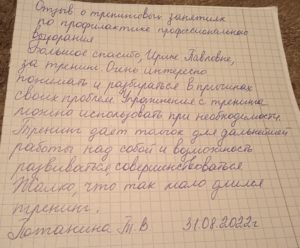 Отзыв о тренинговых занятиях
по профилактике профессионального
выгорания
Большое спасибо, Ирине Павловне,
за тренинг. Очень интересно
понимать и разбираться в причинах
своих проблем. Упражнения с тренинга
можно использовать при необходимости.
Тренинг дает толчок для дальнейшей
работы над собой и возможность
развиваться, совершенствоваться
Жалко, что так мало длился
тренинг.
Потанина Т.В 31.08.2022г